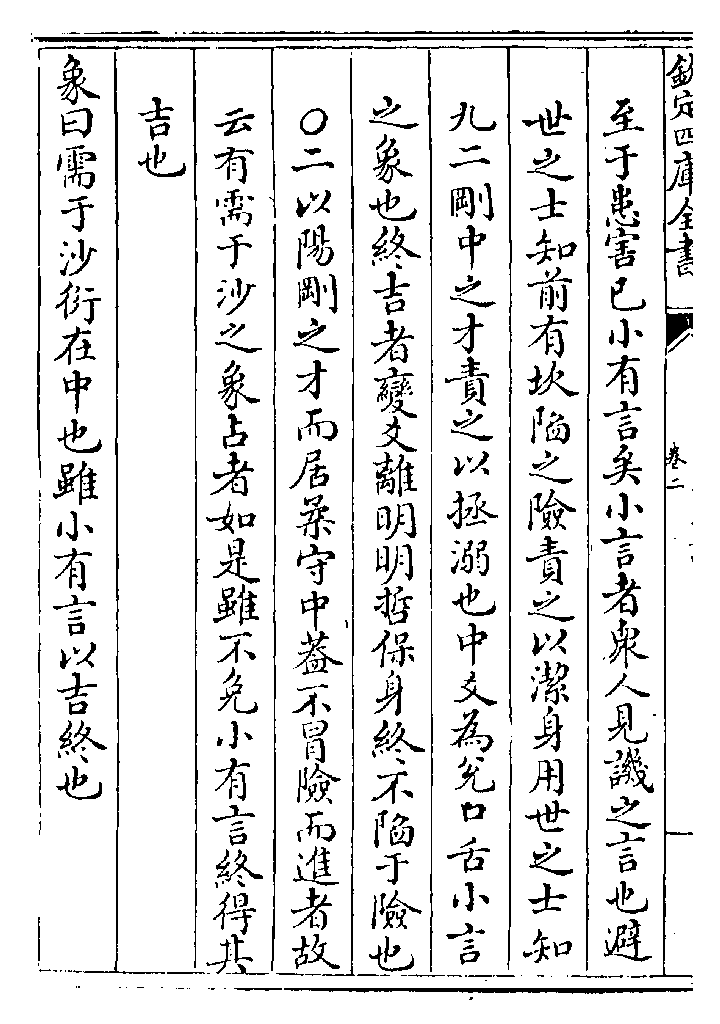 欽定四庫全書
卷二
至于患害已小有言矣小言者衆人見譏之言也避
世之士知前有坎陥之險責之以潔身用世之士知
九二剛中之才責之以拯溺也中爻為兊口舌小言
之象也終吉者變爻離明明哲保身終不陥于險也
○二以陽剛之才而居柔守中葢不冒險而進者故
云有需于沙之象占者如是雖不免小有言終得其
吉也
象曰需于沙衍在中也雖小有言以吉終也